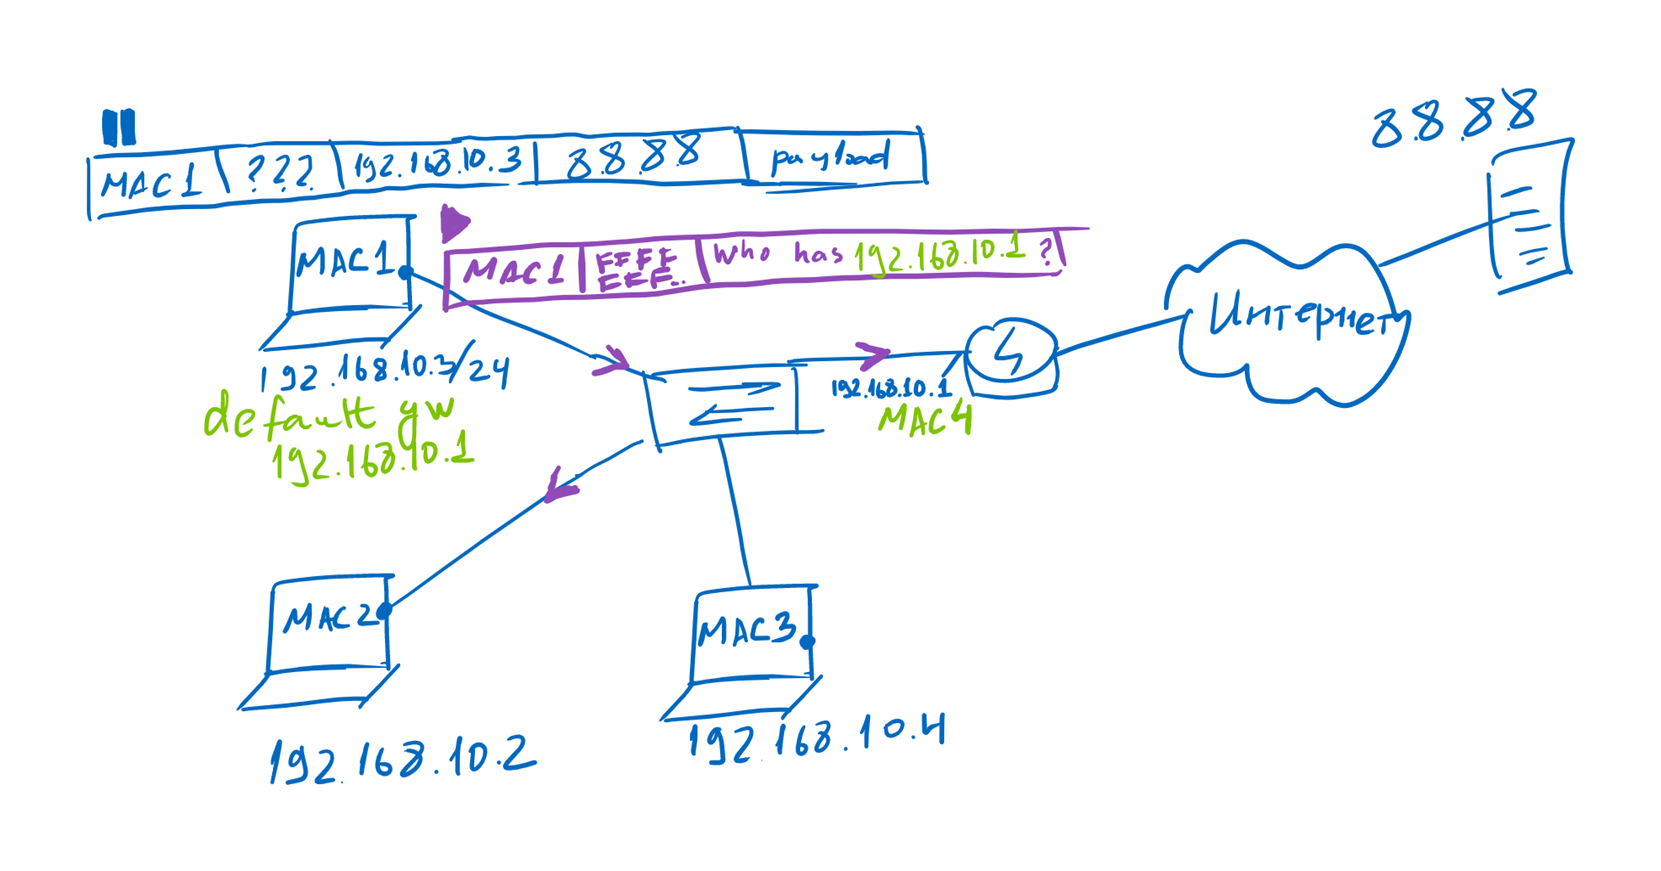 8.8.8.8
MAC1 ??? 192.168.10.3 8.8.8.8 payload
MAC1 FFFF FFF.. Who has 192.168.10.1 ?
MAC1
192.168.10.3/24
default gw
192.168.10.1
192.168.10.1
MAC4
Интернет
MAC2
192.168.10.2
MAC3
192.168.10.4